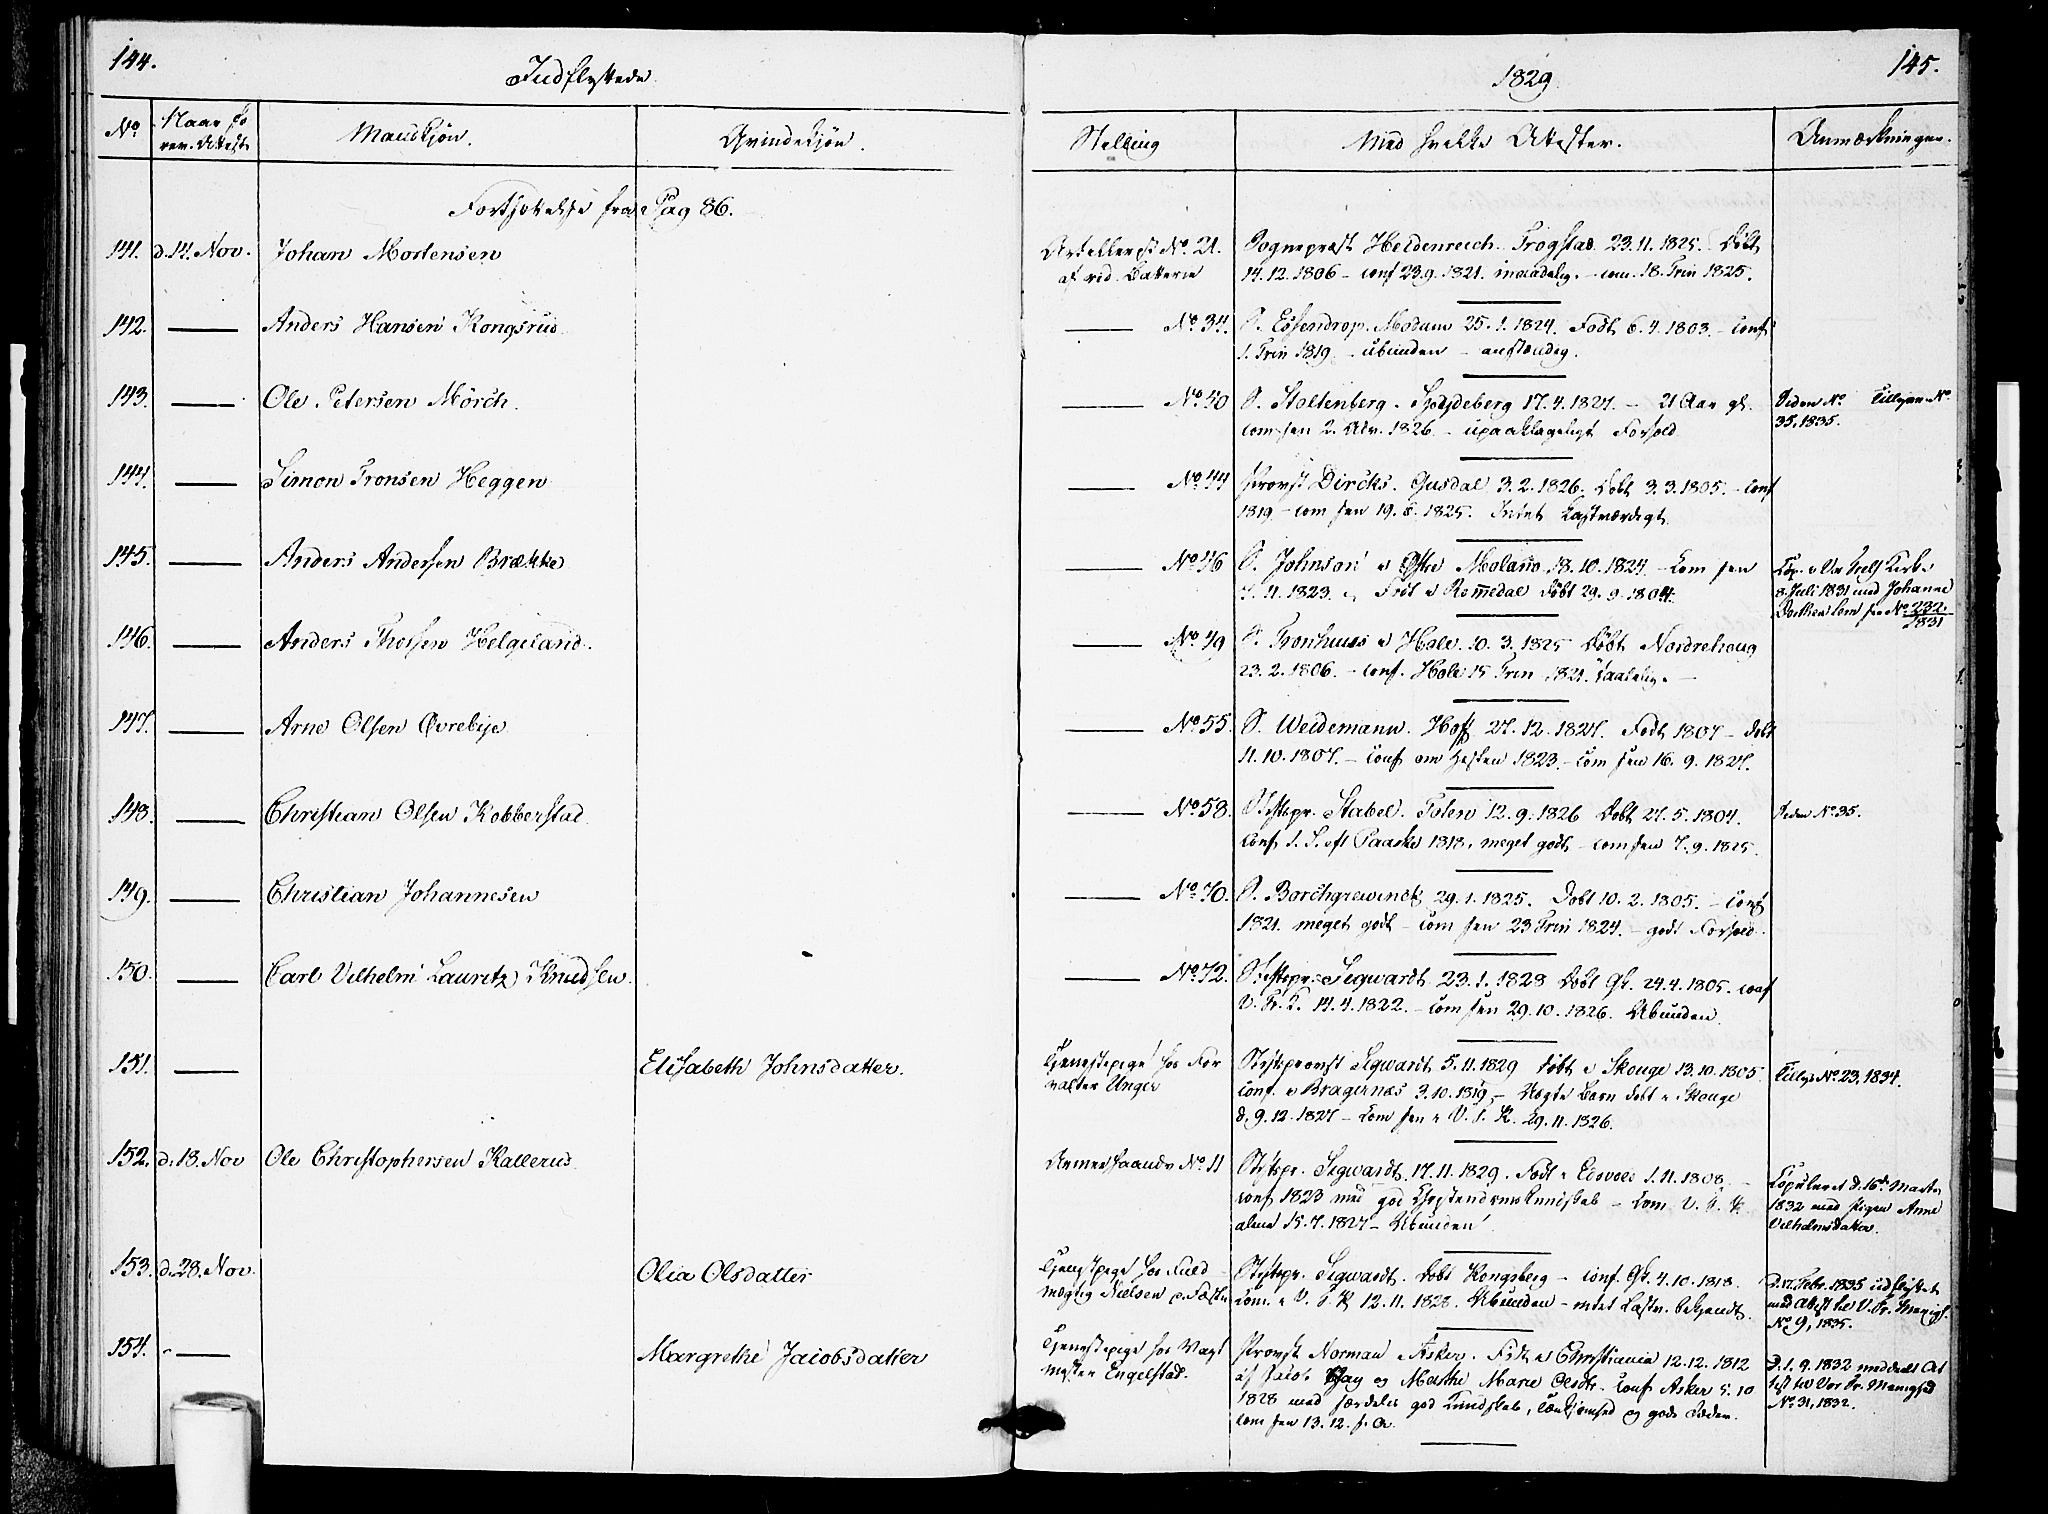 144.
Indflyttede
No
Naar fo
rev. Attest
Mandkjön.
Qvindekjön.
Fortsættelse fra Pag 86.
141. d. 14. Nov. Johan Mortensen
142. Anders Hansen Kongsrud
143. Ole Petersen Mörch.
144. Simon Tronsen Heggen
145. Anders Andersen Brække
146. Anders Thorsen Helgeland.
147. Arne Olsen Øvrebye
148. Christian Olsen Kobberstad
149. Christian Johannesen
150. Carl Vilhelm Lauritz Knudsen
151. Elisabeth Johnsdatter.
152. d. 18. Nov Ole Christophersen Kallerus
153. d. 28. Nov. Olia Olsdatter
154. Margrethe Jacobsdatter
1829
145.
Stilling
Med hvilke Attester.
Anmærkninger.
Artillerist No. 21.
af rid. Batterie
Sognepræst Heidenreich. Trogstad 23.11.1825. Döbt
14.12.1806 - conf 23.9.1821. - com. 18. Trin 1825.
No. 34.
S. Essendrop. Modum 25.1.1824. Födt 6.4.1803. - Conf
1. Trin 1819 - ubunden - anstændig.
No. 40
S. Stoltenberg. Spydeberg 17.4.1827. - 21 Aar gl.
com sen 2. Adv. 1826. - upaaklageligt Forhold
Siden No. Tillgen No.
35, 1835.
No. 44
Provst Dircks. Gusdal 3.2.1826. Döbt 3.3.1805. - Conf
1819 - com sen 19. 1825. Intet Lastværdigt
No. 46
S. Johnson 18.10.1824. - Com sen
11.1823. Födt i Romedal Döbt 29.9.1804.
Cop. i Vor Frels Kirke
8. Juli 1831 med Johanne
No. 232.
1831
No. 49
S. Tronhuus i Hole. 10.3.1825 Döbt Nordrehoug
23.2.1806. - conf. Hole 15 Trin 1821.
No. 55.
S. Weidemann. Hoff 27.12.1827. Födt 1807 - döbt
11.10.1807. - Conf om Hösten 1823. - Com sen 16.9.1827.
No. 58.
Stiftspr. Stabel. Toten 12.9.1826 Döbt 27.5.1804.
Conf 1. S. eft Paaske 1818, meget godt - com sen 7.9.1825.
Siden No. 35.
No. 70.
S. Borchgrewinck 29.1.1825. Döbt 10.2.1805. - Conf
1821. meget godt - com sen 23 Trin 1824. - godt Forhold.
No. 72.
Stiftspr. Sigwardt 23.1.1828 Döbt Gk. 24.4.1805. conf
V. Fr. K. 14.4.1822. - com sen 29.10.1826. Ubunden.
Tjenestepige hos For
valter Unger
Stiftsprovst Sigwardt 5.11.1829 döbt i Skouge 13.10.1805
Conf. i Bragernæs 3.10.1819 - Uægte Barn döbt i Skouge
d. 9.12.1827 - Com sen i V. F. K. 29.11.1826.
Tillgs No. 23, 1834.
No. 11
Stiftspr. Sigwardt 17.11.1829. Födt i Eidsvold 1.11.1808. -
conf 1823 med god Christendomskundskab - Com V. F. K
alene 15.7.1827 - Ubunden
Copuleret d. 16de Marts
1832 med Pigen Anne
Vilhelmsdatter.
Tjenestpige hos Fuld-
mægtig Nielsen p. Fæstn
Stiftspr. Sigwardt. Döbt Kongsberg - conf. Gk. 4.10.1818.
Com. i V. F. K 12.11.1828. Ubunden - intet Lastv. bekjendt.
D. 17. Febr. 1835 udflyttet
med Attest til V. Fr. Menigh.
No. 9, 1835.
Tjenestepige hos Vagt
mester Engelstad.
Provst Norman i Asker. Födt i Christiania 12.12.1812
af Jacob og Marthe Marie Olsdtr. Conf Asker 5.10
1828 med særdeles god Kundskab, og gode Sæder.
Com sen 13.12. f. A.
D. 1.9.1832 meddeelt At
test til Vor Fr. Menighed
No. 31, 1832.